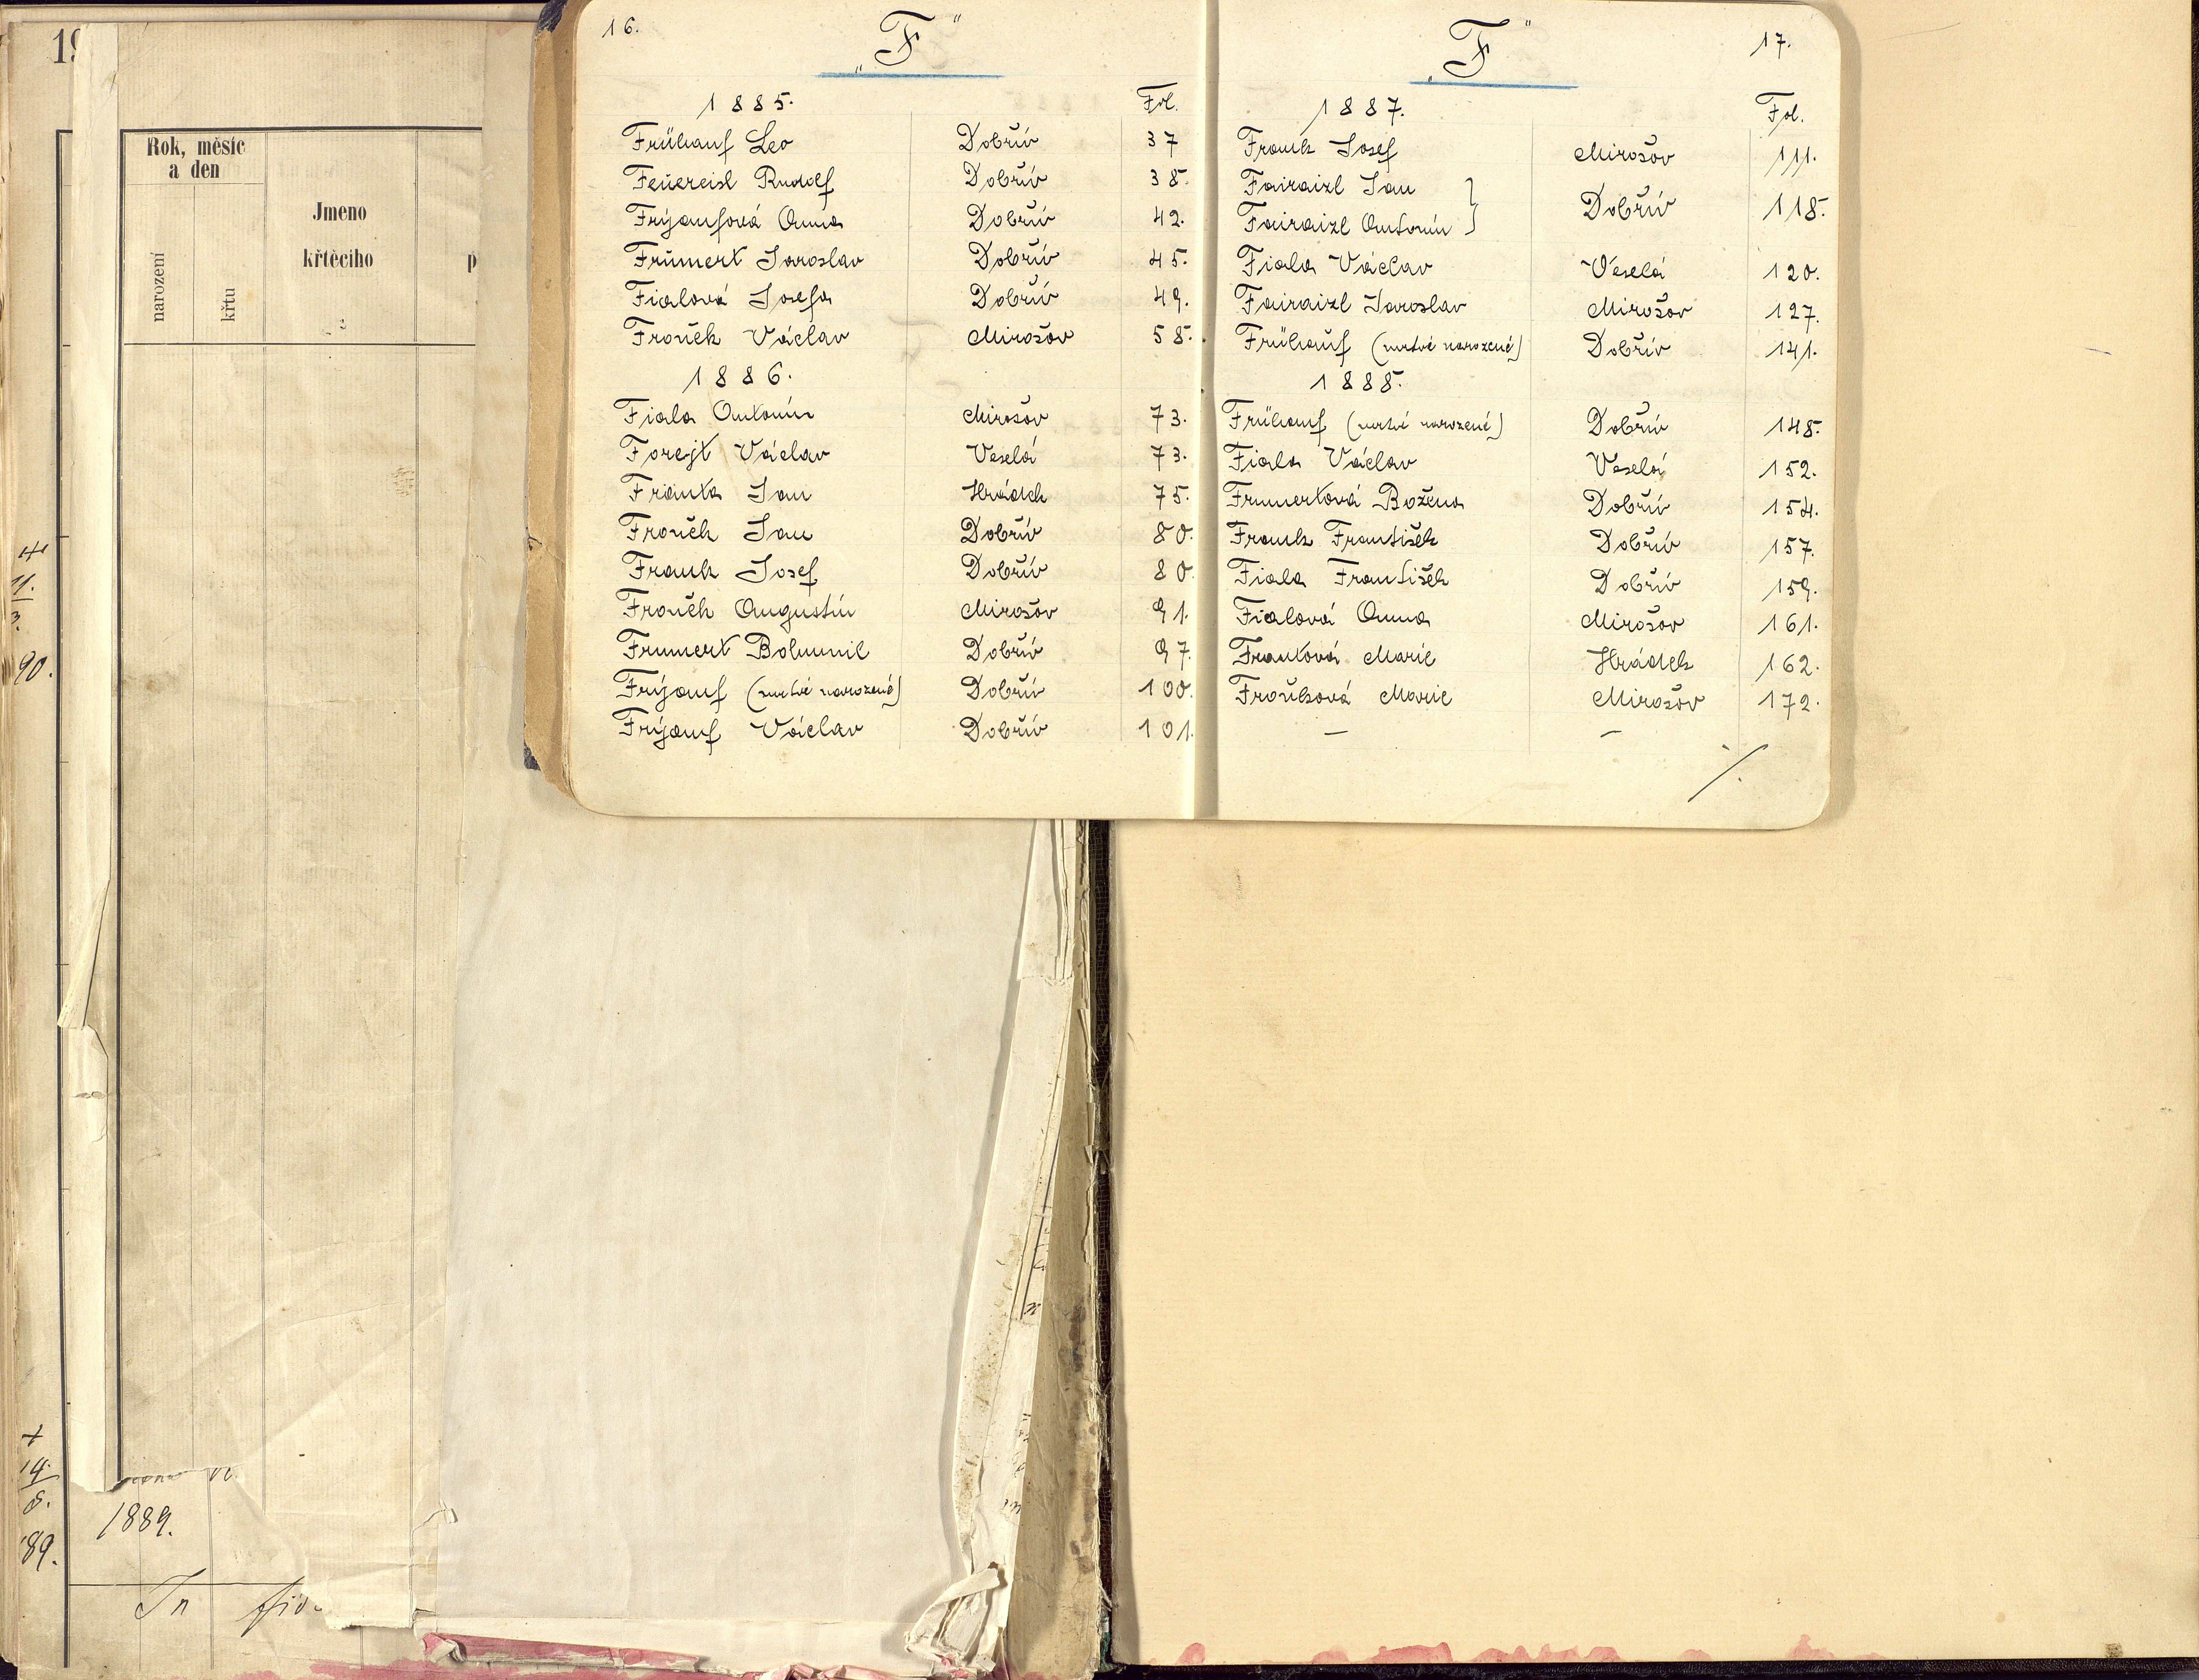 16.
„F“
1885.
Fol.
Frühauf Leo Dobřív 37
Feuereisl Rudolf Dobřív 38.
Frýaufová Anna Dobřív 42.
Frümert Jaroslav Dobřív 45.
Fialová Josefa Dobřív 49.
Froněk Václav Mirošov 58.
1886.
Fiala Antonín Mirošov 73.
Forejt Václav Veselá 73.
Franta Jan Hrádek 75.
Froněk Jan Dobřív 80.
Frank Josef Dobřív 80.
Froněk Augustin Mirošov 91.
Frumert Bohumil Dobřív 97.
Frýauf (mrtvě narozené) Dobřív 100.
Frýauf Václav Dobřív 101.
„F“
17.
1887.
Fol.
Frank Josef Mirošov 111.
Fairaizl Jan
Fairaizl Antonín } Dobřív 118.
Fiala Václav Veselá 120.
Fairaizl Jaroslav Mirošov 127.
Frühauf (mrtvě narozené) Dobřív 141.
1888.
Frühauf (mrtvě narozené) Dobřív 148.
Fiala Václav Veselá 152.
Frumertová Božena Dobřív 154.
Frank František Dobřív 157.
Fiala František Dobřív 159.
Fialová Anna Mirošov 161.
Frantová Marie Hrádek 162.
Froňková Marie Mirošov 172.
— —
./.
19
Rok, měsíc
a den
narození
křtu
Jmeno
křtěcího
2
p
11.
3.
90.
14.
8.
89.
1889.
In